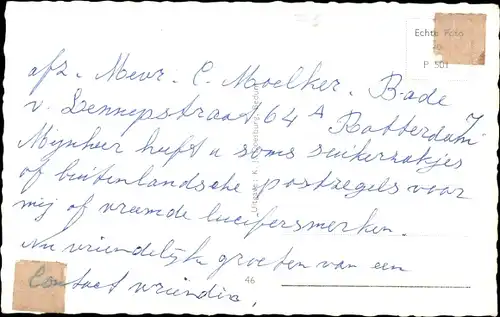 Echte Foto
P 501
afz. Mevr. C. Moelker. Bade
v. Lennepstraat 64 A Rotterdam 7
Mijnheer heeft u soms suikerzakjes
of buitenlandsche postzegels voor
mij of vreemde lucifersmerken.
Nu vriendelijk groeten van een
Contact vriendin.
46